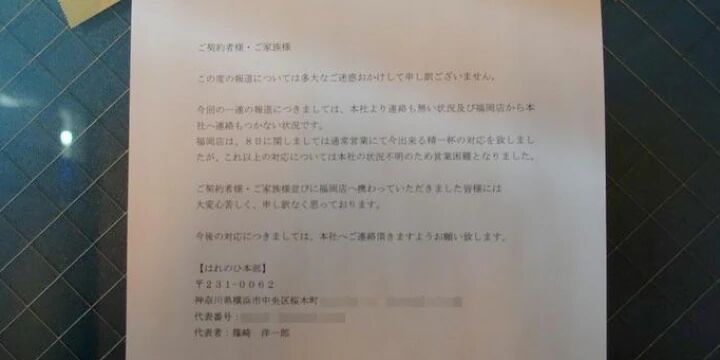 ご契約者様・ご家族様
この度の報道については多大なご迷惑おかけして申し訳ございません。
今回の一連の報道につきましては、本社より連絡も無い状況及び福岡店から本
社へ連絡もつかない状況です。
福岡店は、８日に関しましては通常営業にて今出来る精一杯の対応を致しまし
たが、これ以上の対応については本社の状況不明のため営業困難となりました。
ご契約者様・ご家族様並びに福岡店へ携わっていただきました皆様には
大変心苦しく、申し訳なく思っております。
今後の対応につきましては、本社へご連絡頂きますようお願い致します。
【はれのひ本部】
〒２３１-００６２
神奈川県横浜市中央区桜木町
代表番号：
代表者：篠崎　洋一郎